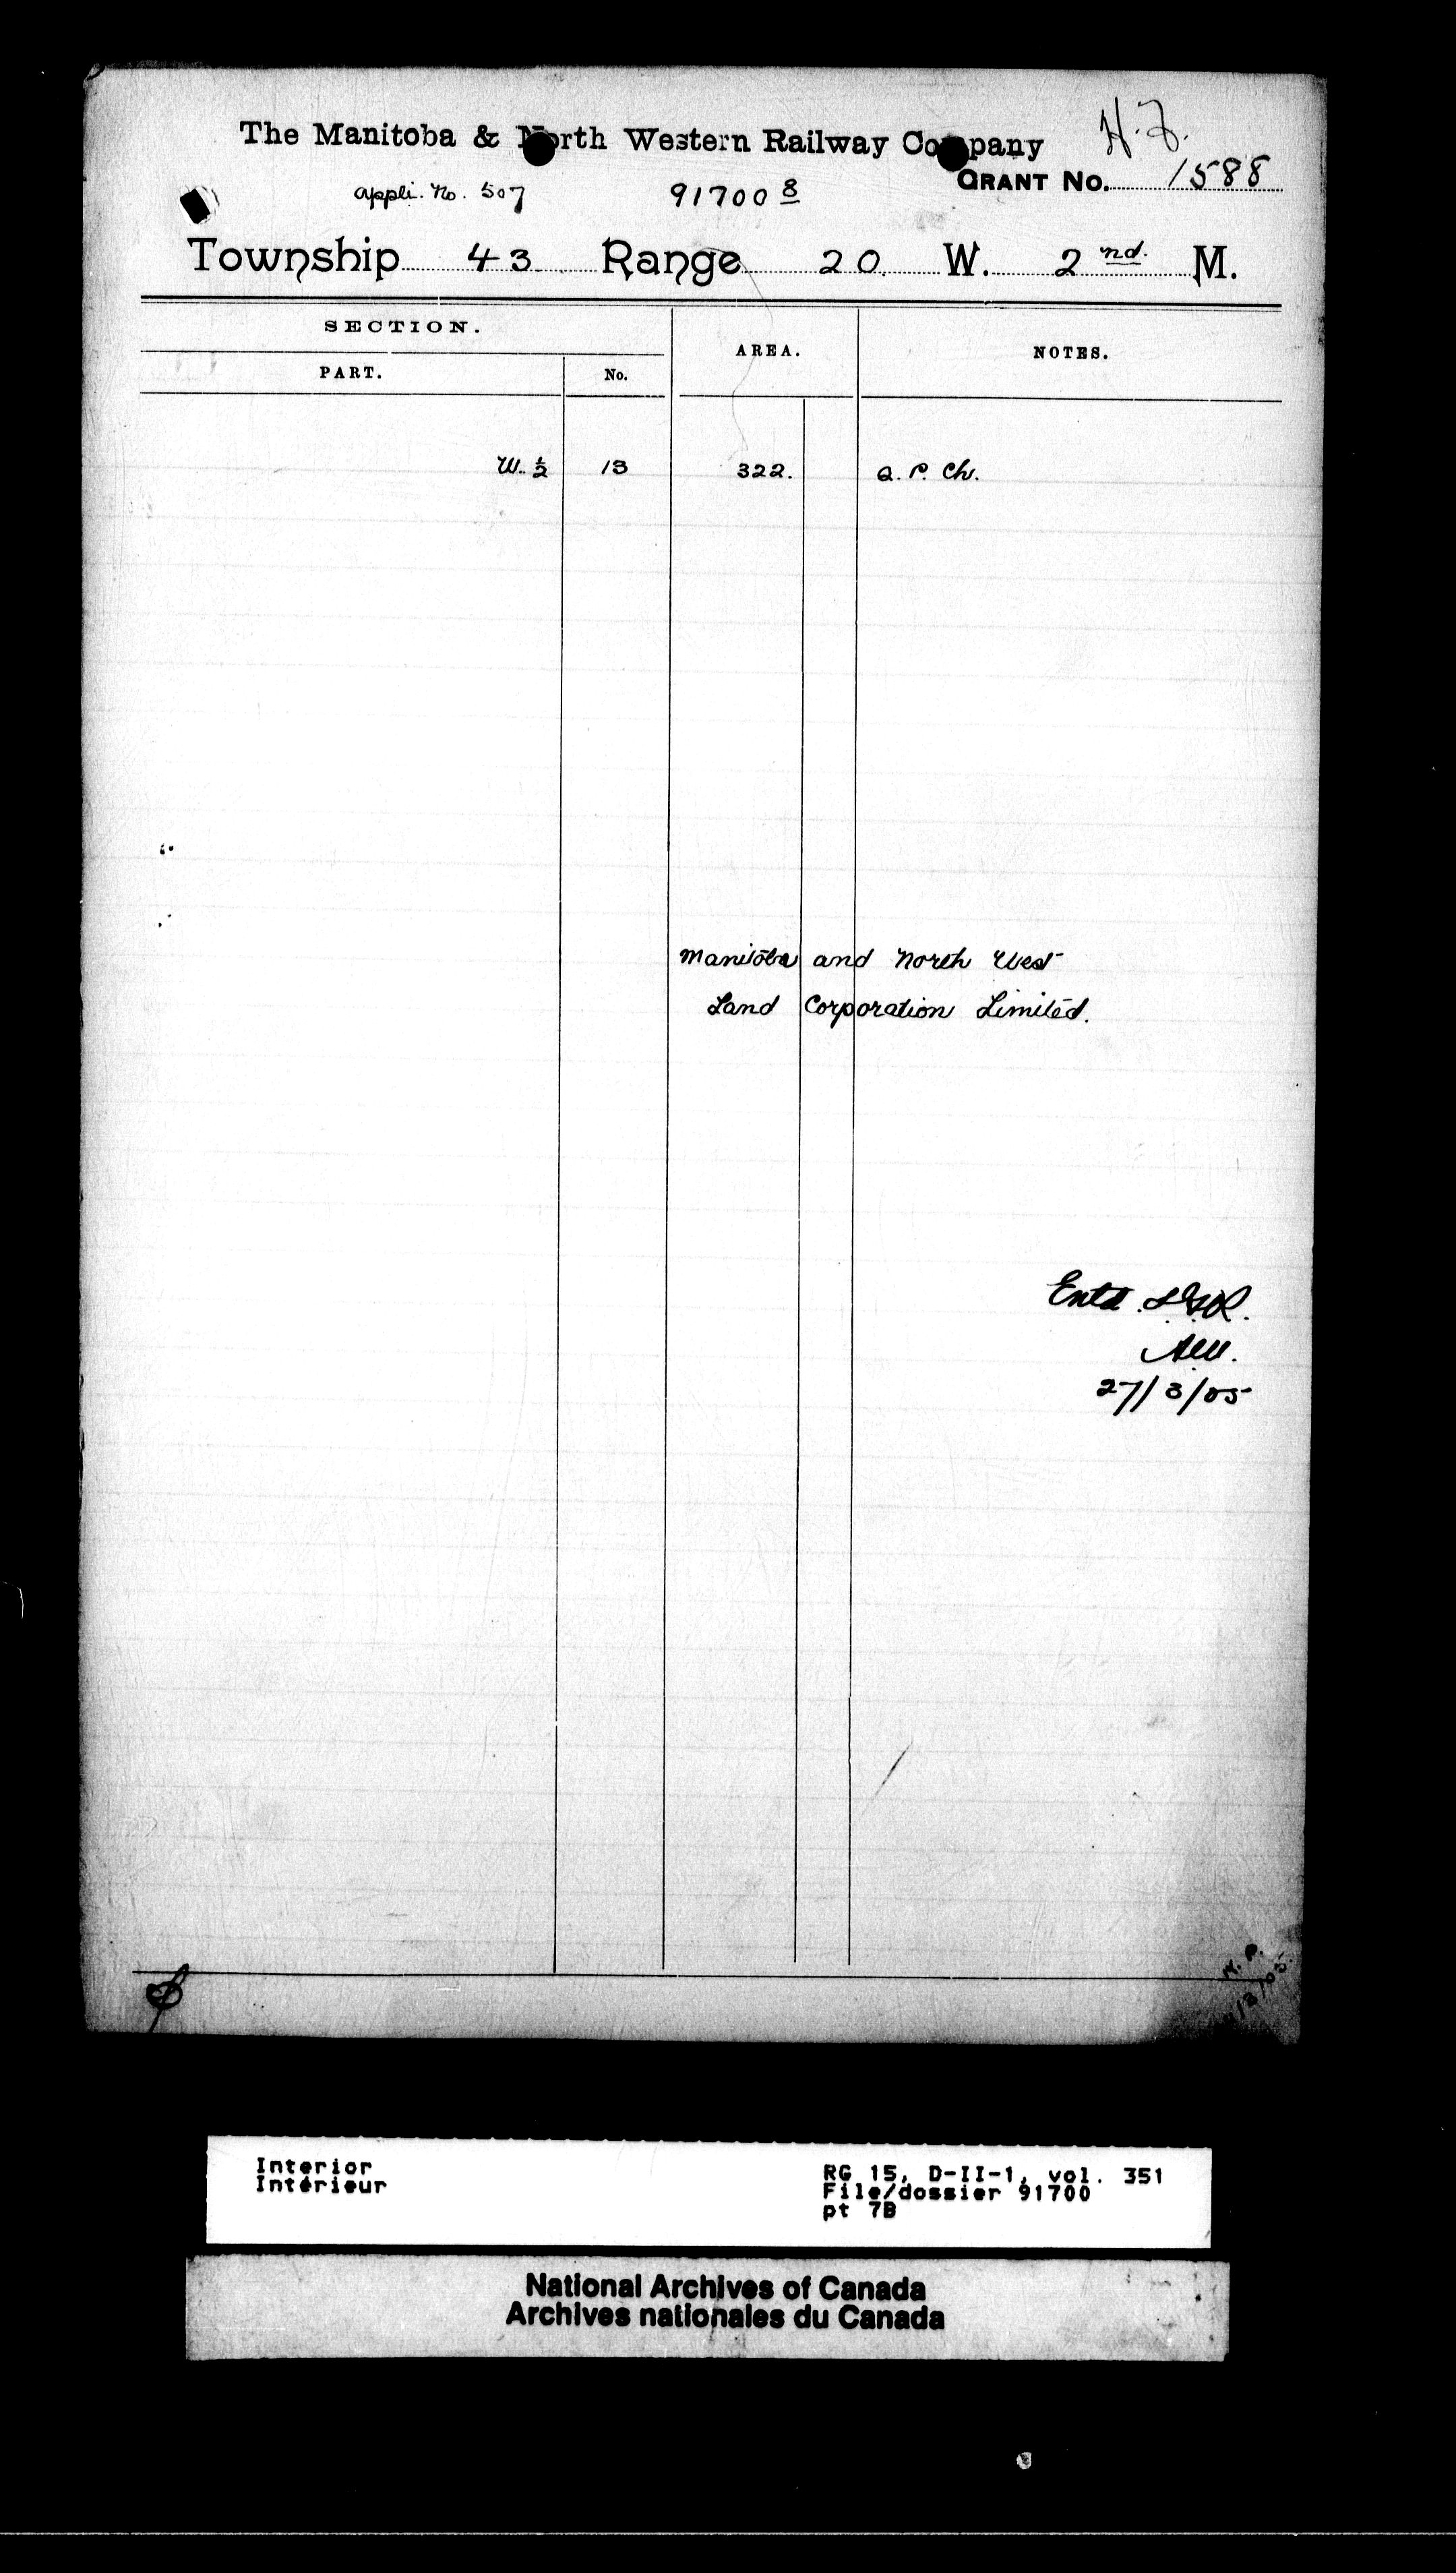 The Manitoba & North Western Railway Company
H.F.
GRANT No. 1588
Appli. No. 507 91700 8
Township 43 Range 20 W. 2nd. M.
SECTION.
AREA.
NOTES.
PART.
No.
W. ½ 13 322. Q. P. Ch.
Manitoba and North West
Land Corporation Limited.
Entd.
27/3/05
Interior
Intérieur
RG 15, D-II-1, vol. 351
File/dossier 91700
pt 7B
National Archives of Canada
Archives nationales du Canada